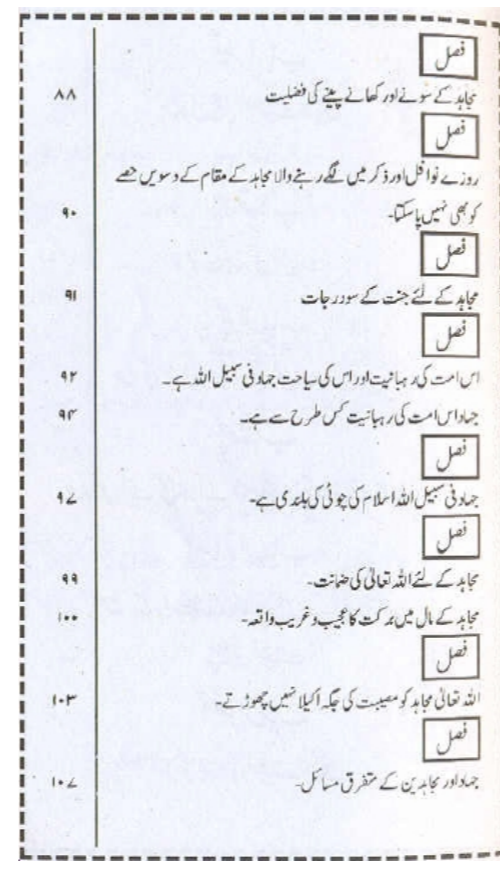 فصل
مجاہد کے سونے اور کھانے پینے کی فضلیت ۸۸
فصل
روزے نوافل اور ذکر میں لگے رہنے والا مجاہد کے مقام کے دسویں حصے
کو بھی نہیں پا سکتا۔ ۹۰
فصل
مجاہد کے لئے جنت کے سو درجات ۹۱
فصل
اس امت کی رہبانیت اور اس کی سیاحت جہاد فی سبیل اللہ ہے۔ ۹۲
جہاد اس امت کی رہبانیت کس طرح سے ہے۔ ۹۴
فصل
جہاد فی سبیل اللہ اسلام کی چوٹی کی بلندی ہے۔ ۹۷
فصل
مجاہد کے لئے اللہ تعالیٰ کی ضمانت۔ ۹۹
مجاہد کے مال میں برکت کا عجیب و غریب واقعہ۔ ۱۰۰
فصل
اللہ تعالیٰ مجاہد کو مصیبت کی جگہ اکیلا نہیں چھوڑتے۔ ۱۰۳
فصل
جہاد اور مجاہدین کے متفرق مسائل۔ ۱۰۷